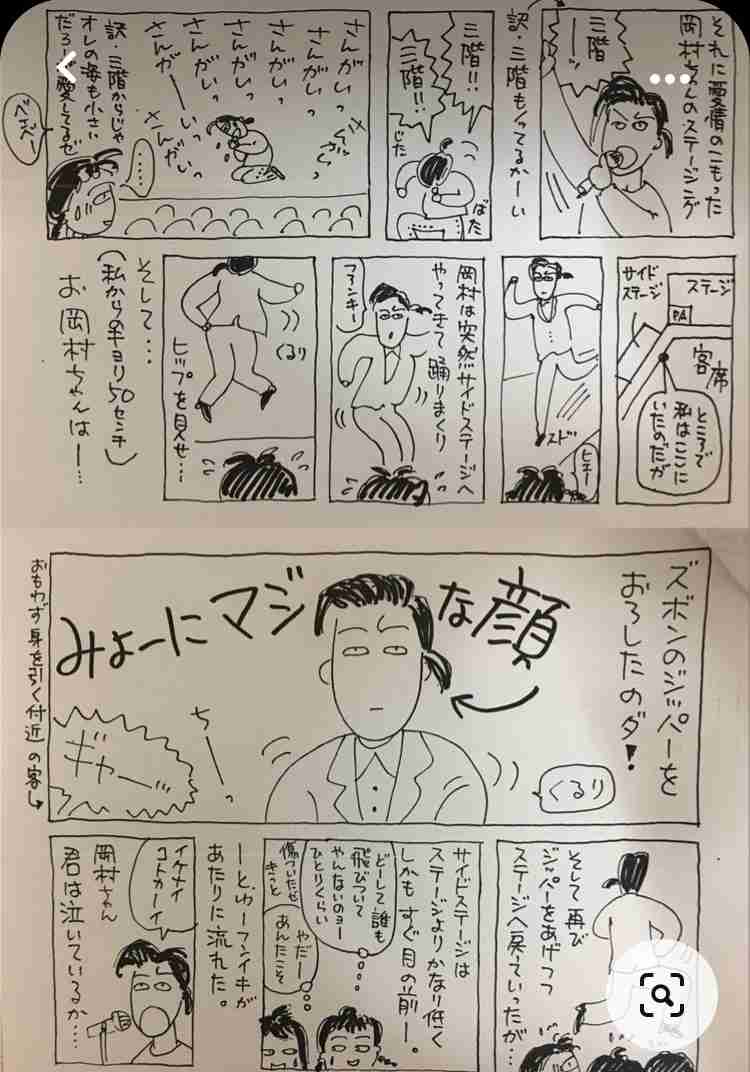 それに愛情のこもった
岡村ちゃんのステージング
三階
ーッ
訳・三階もノッてるかーい
三階!!
三階!!
じた
ばた
さんがいっ
さんがいっ
さんがいっ
さんがいっ
さんがいっ
さんがーいっ
さんがいっ
さんがいっ
訳・三階からじゃ
オレの姿も小さい
だろーが愛してるぜ
ベイベー
・・・・
ステージ
サイド
ステージ
PA
客席
ところで
私はここに
いたのだが
スド
ヒェー
岡村は突然サイドステージへ
やってきて踊りまくり
ファンキー
くるり
ヒップを見せ…
そして…
(私からのキョリ50センチ)
お岡村ちゃんはー…
ズボンのジッパーを
おろしたのダ!
みょーにマジな顔
くるり
ちーっ
ギャー
おもわず身を引く付近の客
そして再び
ジッパーをあげつつ
ステージへ戻っていったが…
サイドステージは
ステージよりかなり低く
しかもすぐ目の前ー。
どーして誰も
飛びついて
やんないのョー
ひとりくらい
傷ついたぜ
きっと
やだー
あんたこそ
ーとゆーフンイキが
あたりに流れた。
イケナイ
コトカーイ
岡村ちゃん
君は泣いているか…